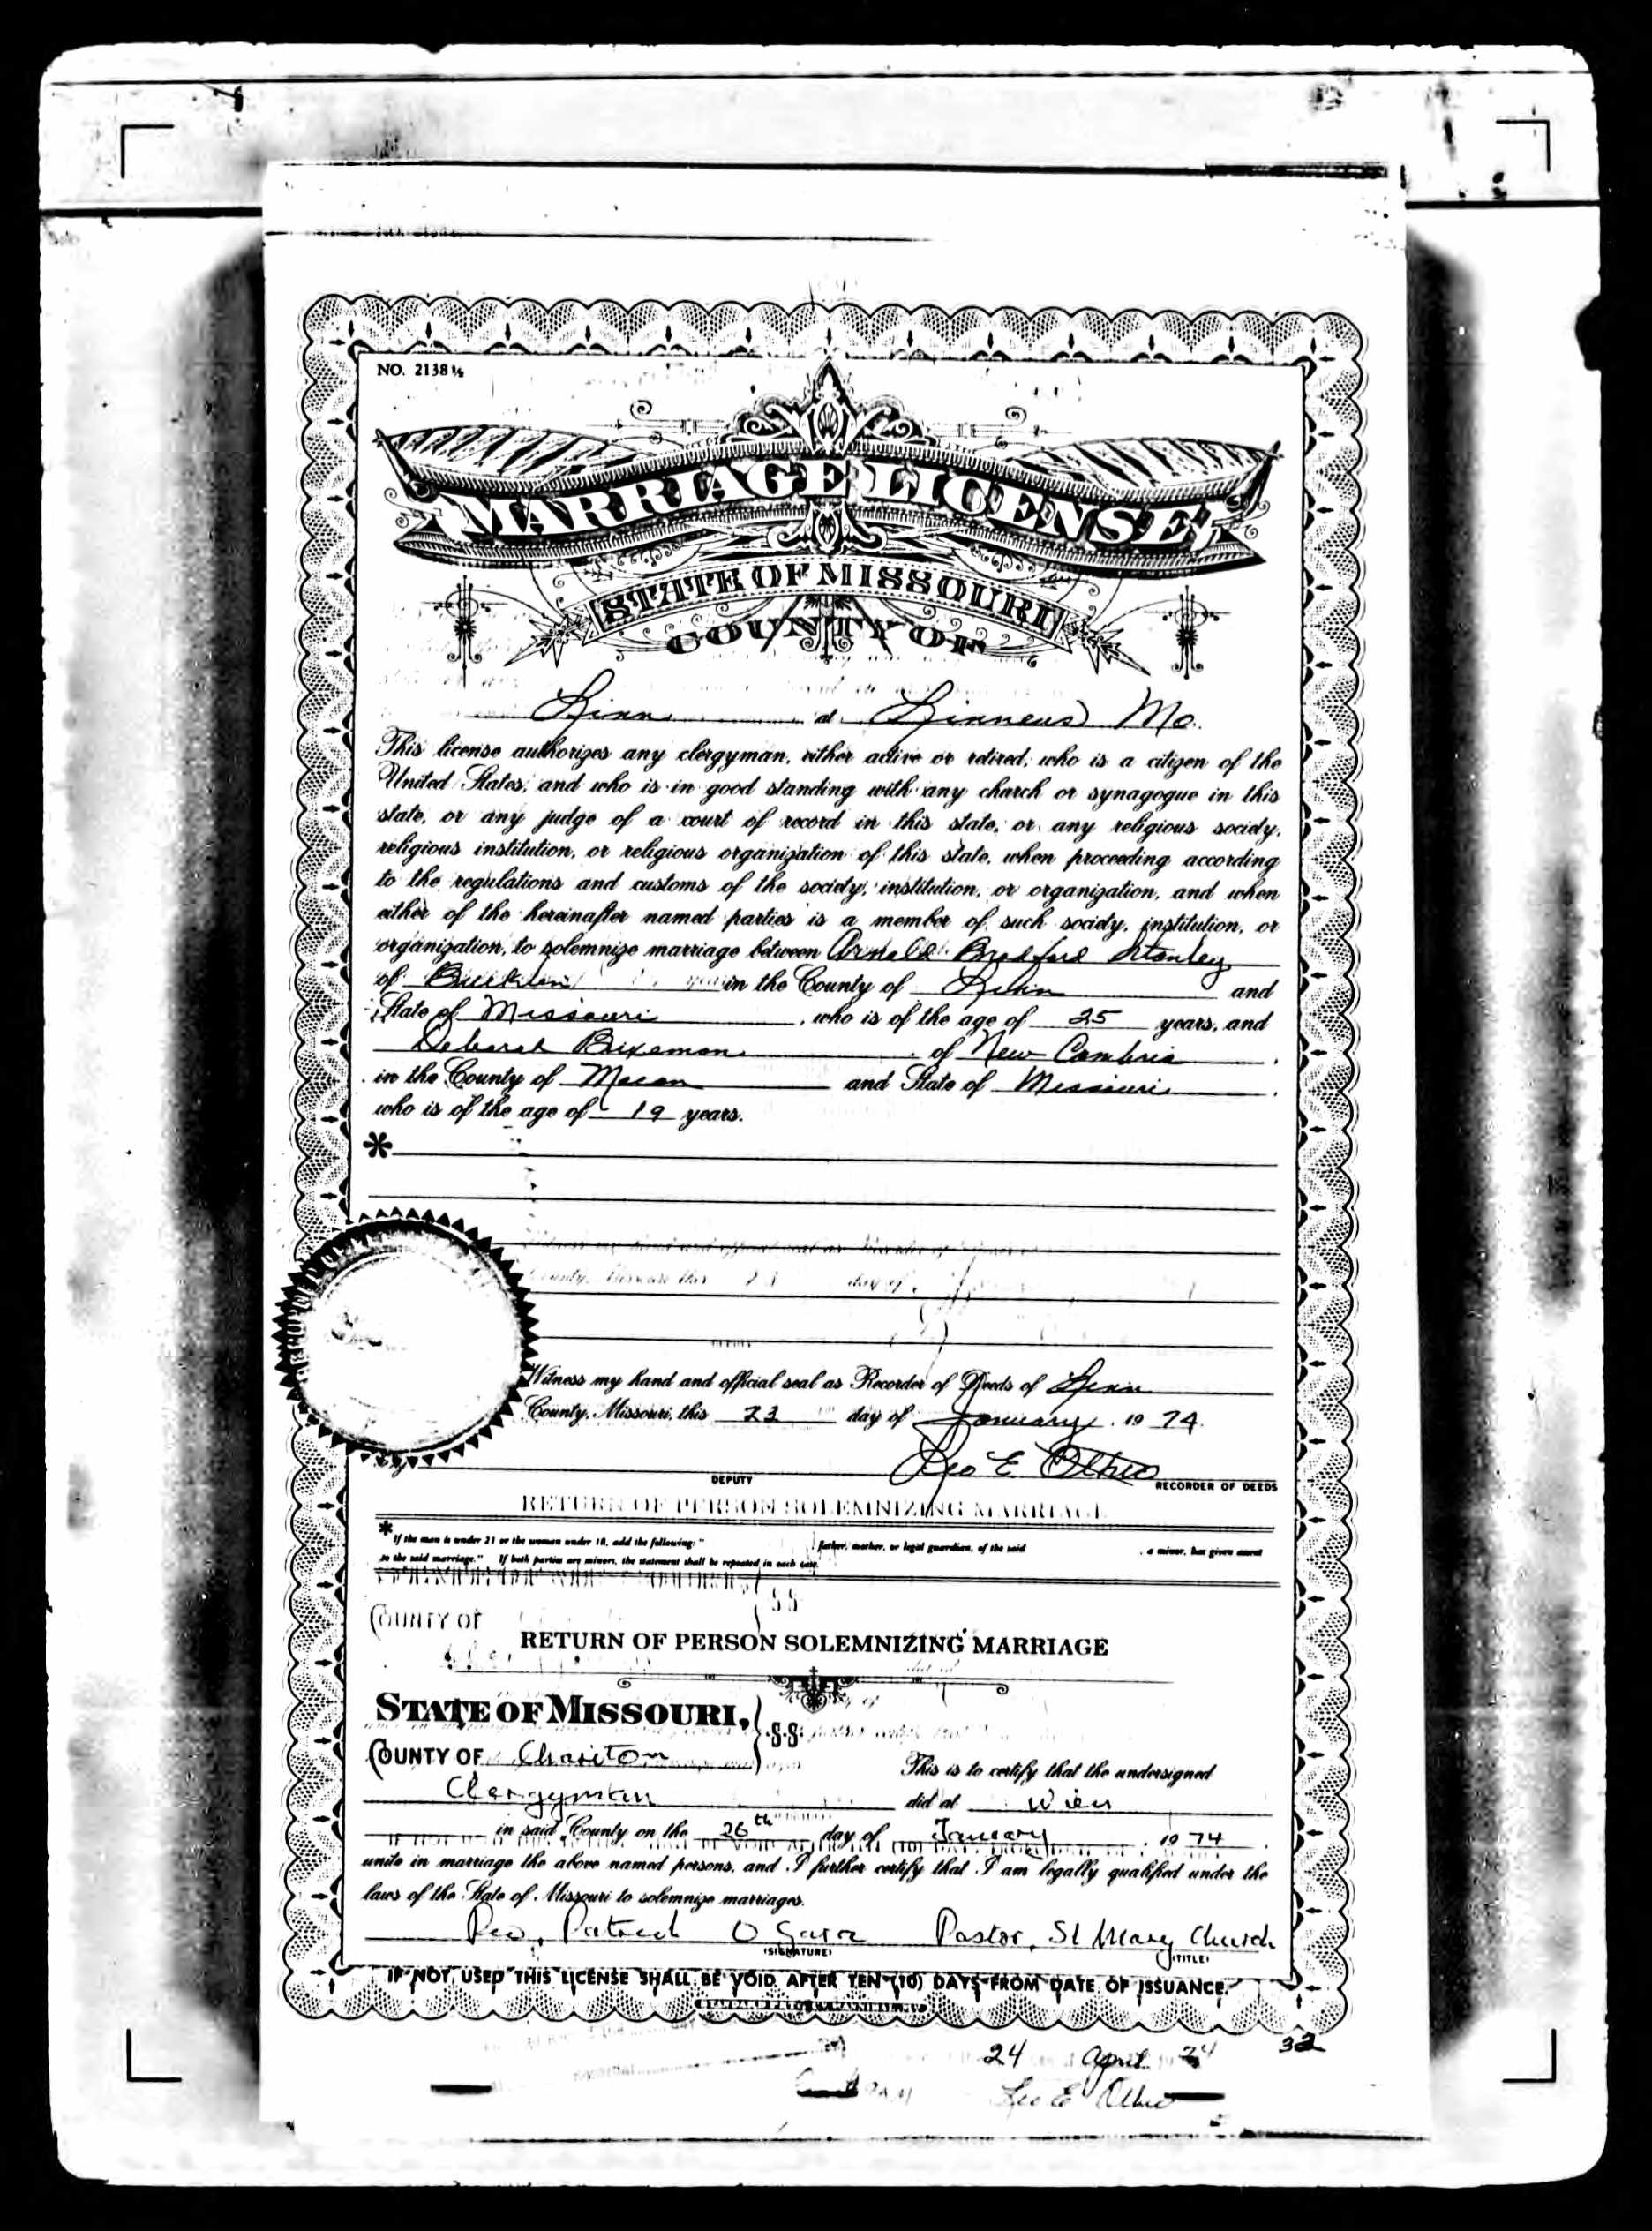 NO. 2138 ½
MARRIAGE LICENSE
STATE OF MISSOURI
COUNTY OF
Linn at Linneus Mo.
This license authorizes any clergyman, either active or retired, who is a citizen of the
United States, and who is in good standing with any church or synagogue in this
state, or any judge of a court of record in this state, or any religious society,
religious institution, or religious organization of this state, when proceeding according
to the regulations and customs of the society, institution, or organization, and when
either of the hereinafter named parties is a member of such society, institution, or
organization, to solemnize marriage between Arnold Bradford Stanley
of Bucklin in the County of Linn and
State of Missouri, who is of the age of 25 years, and
Deborah Bixeman of New Cambria,
in the County of Macon and State of Missouri,
who is of the age of 19 years.
*
Witness my hand and official seal as Recorder of Deeds of Linn
County, Missouri, this 23 day of January, 19 74.
Leo E.
DEPUTY RECORDER OF DEEDS
RETURN OF PERSON SOLEMNIZING MARRIAGE
* If the man is under 21 or the woman under 18, add the following: " father, mother, or legal guardian, of the said , a minor, has given assent
to the said marriage." If both parties are minors, the statement shall be repeated in each case.
COUNTY OF
SS
RETURN OF PERSON SOLEMNIZING MARRIAGE
STATE OF MISSOURI,
S.S.
COUNTY OF Chariton
This is to certify that the undersigned
Clergyman did at Wien
in said County on the 26th day of January, 19 74
unite in marriage the above named persons, and I further certify that I am legally qualified under the
laws of the State of Missouri to solemnize marriages.
Rev. Patrick O Gara Pastor, St Mary Church
(SIGNATURE) (TITLE)
IF NOT USED THIS LICENSE SHALL BE VOID AFTER TEN (10) DAYS FROM DATE OF ISSUANCE.
32
24 April 74
Leo E